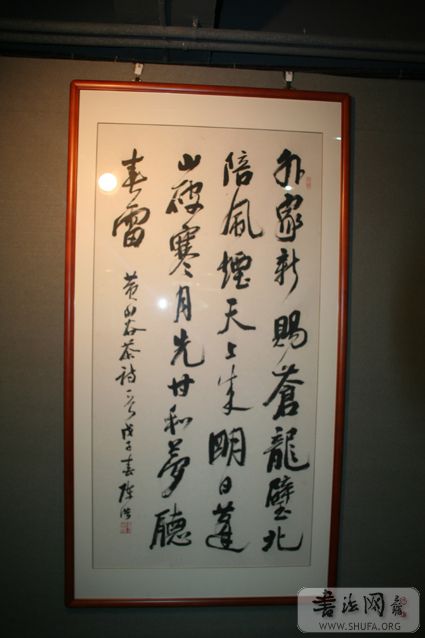 外家新賜蒼龍璧北
焙風煙天上来明日蓬
山破寒月先甘和夢聽
春雷
黄山谷茶詩一首戊子春
書法网
WWW.SHUFA.ORG